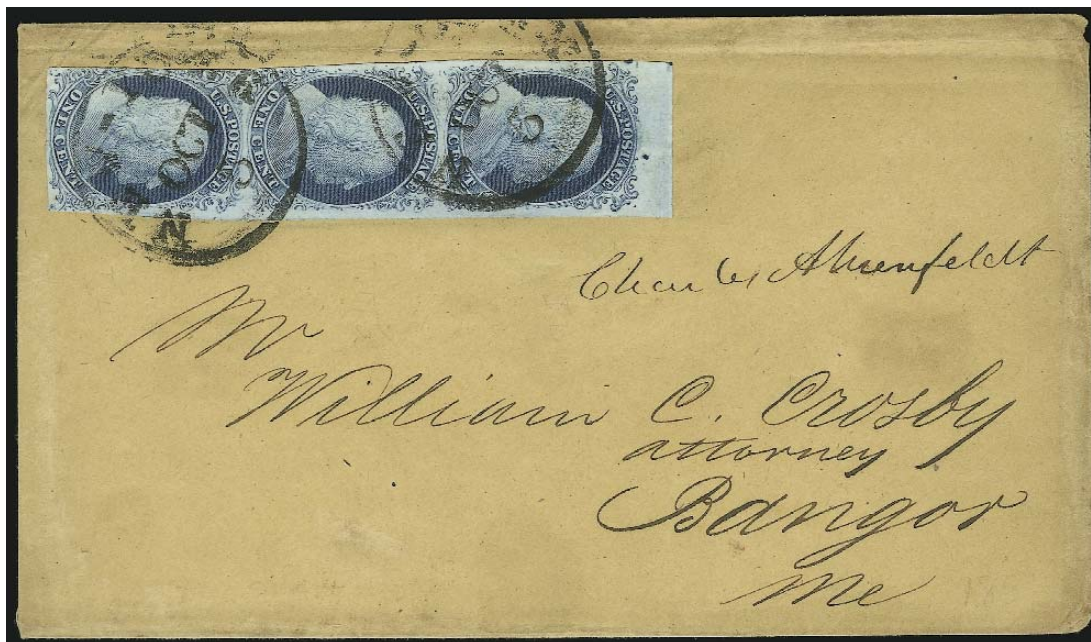 U.S. POSTAGE
ONE CENT
U.S. POSTAGE
ONE CENT
U.S. POSTAGE
ONE CENT
OCT
Mr
William C. Crosby
attorney
Bangor
Me